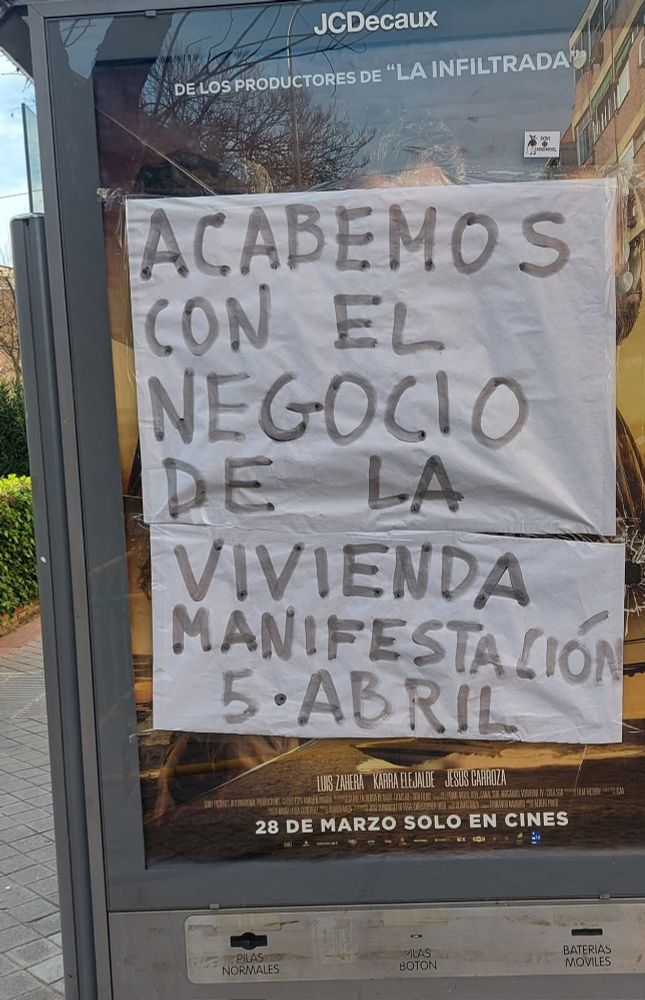 JCDecaux
DE LOS PRODUCTORES DE "LA INFILTRADA"
ACABEMOS
CON EL
NEGOCIO
DE LA
VIVIENDA
MANIFESTACIÓN
5·ABRIL
LUIS ZAHERA KARRA ELEJALDE JESÚS CARROZA
28 DE MARZO SOLO EN CINES
PILAS NORMALES
PILAS BOTON
BATERIAS MOVILES